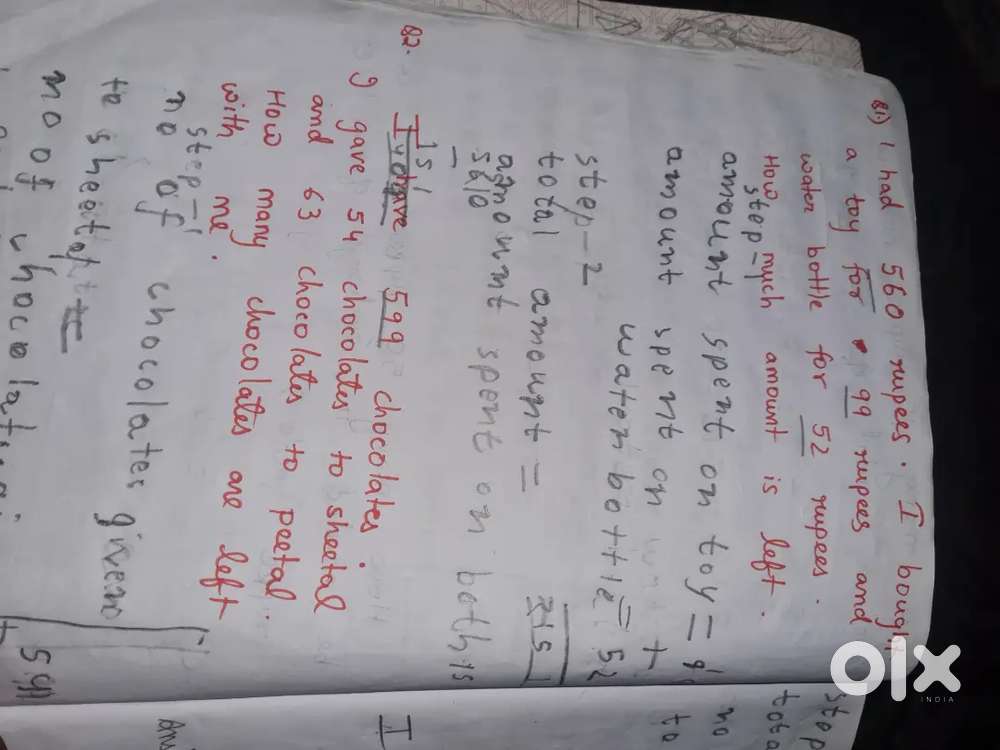 Q1) I had 560 rupees. I bought
a toy for 99 rupees and
water bottle for 52 rupees.
How much amount is left.
step-1
amount spent on toy =
amount spent on +
water bottle = 52
151
step-2
total amount =
amount spent on both 15
560
-
151
Q2. I gave 599 chocolates
I gave 54 chocolates to sheetal
and 63 chocolates to peetal.
How many chocolates are left
with me.
step-1
no of chocolates given
to sheetal =
no of
599
step
tota
no
to
I
Ans
olx
INDIA